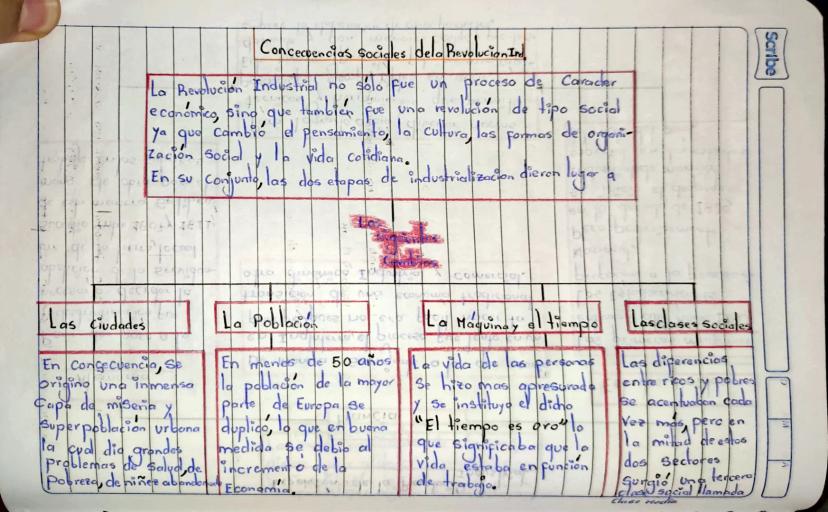 Scribe
Concecuencias sociales dela Revolucion Ind.
La Revolución Industrial no sólo fue un proceso de Caracter
económico, sino que también fue una revolución de tipo social
ya que cambió el pensamiento, la cultura, las formas de organi-
zación social y la vida cotidiana.
En su conjunto, las dos etapas de industrialización dieron lugar a
Los
siguientes
Cambios
Las Ciudades
En concecuencia, se
origino una inmensa
Capa de miseria y
Superpoblación urbana
la cual dio grandes
problemas de salud, de
Pobreza, de niñez abandonada
La Población
En menos de 50 años
la población de la mayor
parte de Europa se
duplicó, lo que en buena
medida se debio al
incremento de la
Economía.
La Máquina y el tiempo
La vida de las personas
se hizo mas apresurada
y se instituyo el dicho
"El tiempo es oro" lo
que significaba que la
vida estaba en función
de trabajo.
Las clases sociales
Las diferencias
entre ricos y pobres
se acentuaban cada
Vez más, pero en
la mitad de estos
dos sectores
Surgió una tercera
clase social llamada
Clase media